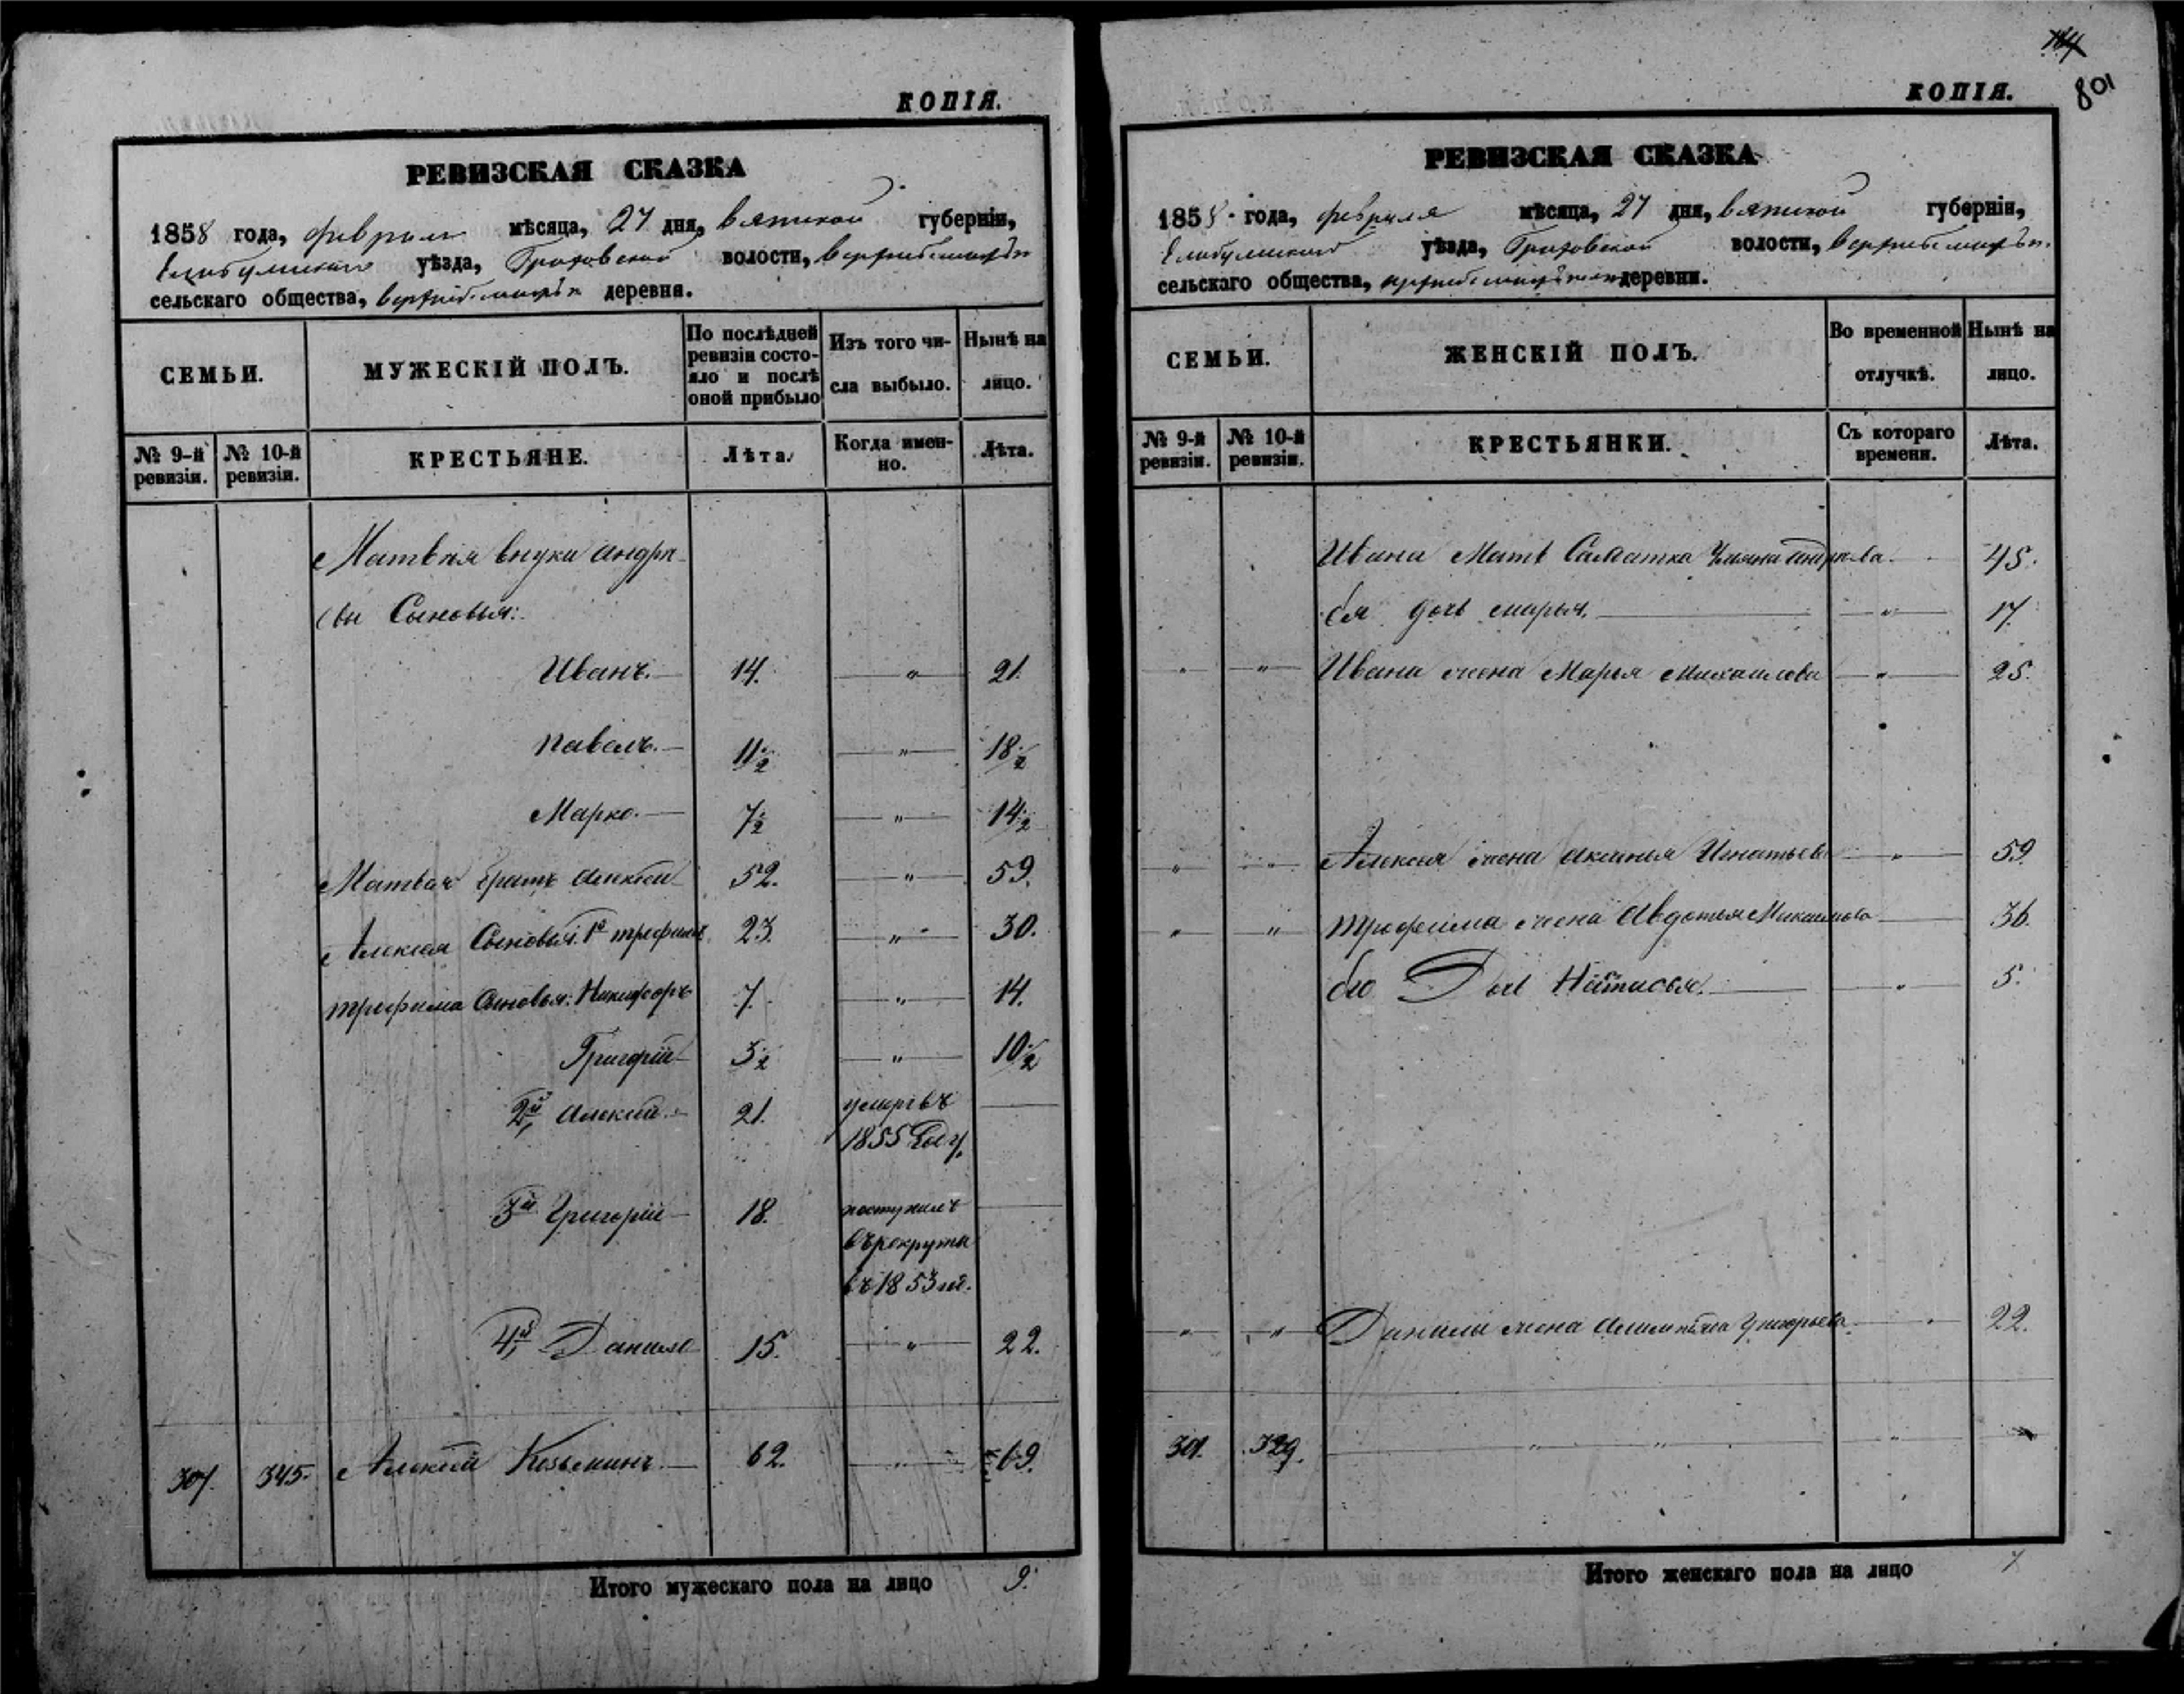 КОПІЯ.
РЕВИЗСКАЯ СКАЗКА
1858 года, февраля мѣсяца, 27 дня, Вятской губерніи,
Елабужскаго уѣзда, Граховской волости,
сельскаго общества, деревня.
СЕМЬИ.
МУЖЕСКІЙ ПОЛЪ.
По послѣдней ревизіи состояло и послѣ оной прибыло
Изъ того числа выбыло.
Нынѣ на лицо.
№ 9-й ревизіи.
№ 10-й ревизіи.
КРЕСТЬЯНЕ.
Лѣта.
Когда именно.
Лѣта.
Матвея внуки Андре
вы Сыновья:
Иванъ. 14. " 21.
Павелъ. 11½ " 18½
Марко. 7½ " 14½
Матвея братъ Алексей 52. " 59.
Алексея Сыновья: 1й Трефилъ 23. " 30.
Трефила Сыновья: Никифоръ 7. " 14.
Григорій 3½ " 10½
2й Алексей. 21. умеръ въ
1855 Году,
3й Григорій 18. поступилъ
въ рекруты
въ 1853 го.
4й Данило 15. " 22.
307. 345. Алексей Козьминъ. 62. " 69.
Итого мужескаго пола на лицо 9.
801
КОПІЯ.
РЕВИЗСКАЯ СКАЗКА
1858 года, февраля мѣсяца, 27 дня, Вятской губерніи,
Елабужскаго уѣзда, Граховской волости,
сельскаго общества, деревни.
СЕМЬИ.
ЖЕНСКІЙ ПОЛЪ.
Во временной отлучкѣ.
Нынѣ на лицо.
№ 9-й ревизіи.
№ 10-й ревизіи.
КРЕСТЬЯНКИ.
Съ котораго времени.
Лѣта.
Ивана Мать Салматка Ульяна Андреева. 45.
Ея дочь Марья. " 17.
" " Ивана жена Марья Михаилова " 25.
" " Алексея жена Аксинья Игнатьева " 59.
" " Трофима жена Авдотья Михаилова 36.
Его Дочь Настасья. " 5.
" " Данила жена Григорьева " 22.
301. 329. " " "
Итого женскаго пола на лицо 7